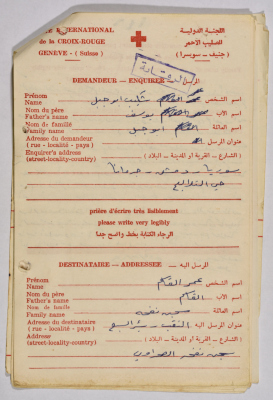 TE INTERNATIONAL
de la CROIX-ROUGE
GENÈVE - (Suisse)
اللجنة الدولية
للصليب الأحمر
(جنيف - سويسرا)
DEMANDEUR — ENQUIRER المرسل
Prénom
Name
اسم الشخص
Nom du père
Father's name
اسم الأب يوسف
Nom de famille
Family name
اسم العائلة ابو جبل
Adresse du demandeur
(rue - localité - pays)
عنوان المرسل
Enquirer's address
(street-locality-country)
(الشارع - القرية أو المدينة - البلاد)
سوريا - دمشق - جرمانا
prière d'écrire très lisiblement
please write very legibly
الرجاء الكتابة بخط واضح جداً
DESTINATAIRE — ADDRESSEE المرسل اليه
Prénom
Name
اسم الشخص
Nom du père
Father's name
اسم الأب
Nom de famille
Family name
اسم العائلة سجن نفحه
Adresse du destinataire
(rue - localité - pays)
عنوان المرسل اليه النقب - بئر السبع
Address
(street-locality-country)
(الشارع - القرية أو المدينة - البلاد)
سجن نفحه الصحراوي